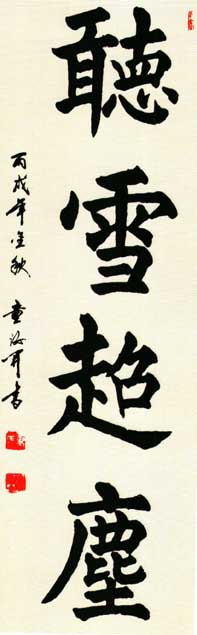 聽雪超塵
丙戌年金秋 童汝耳書